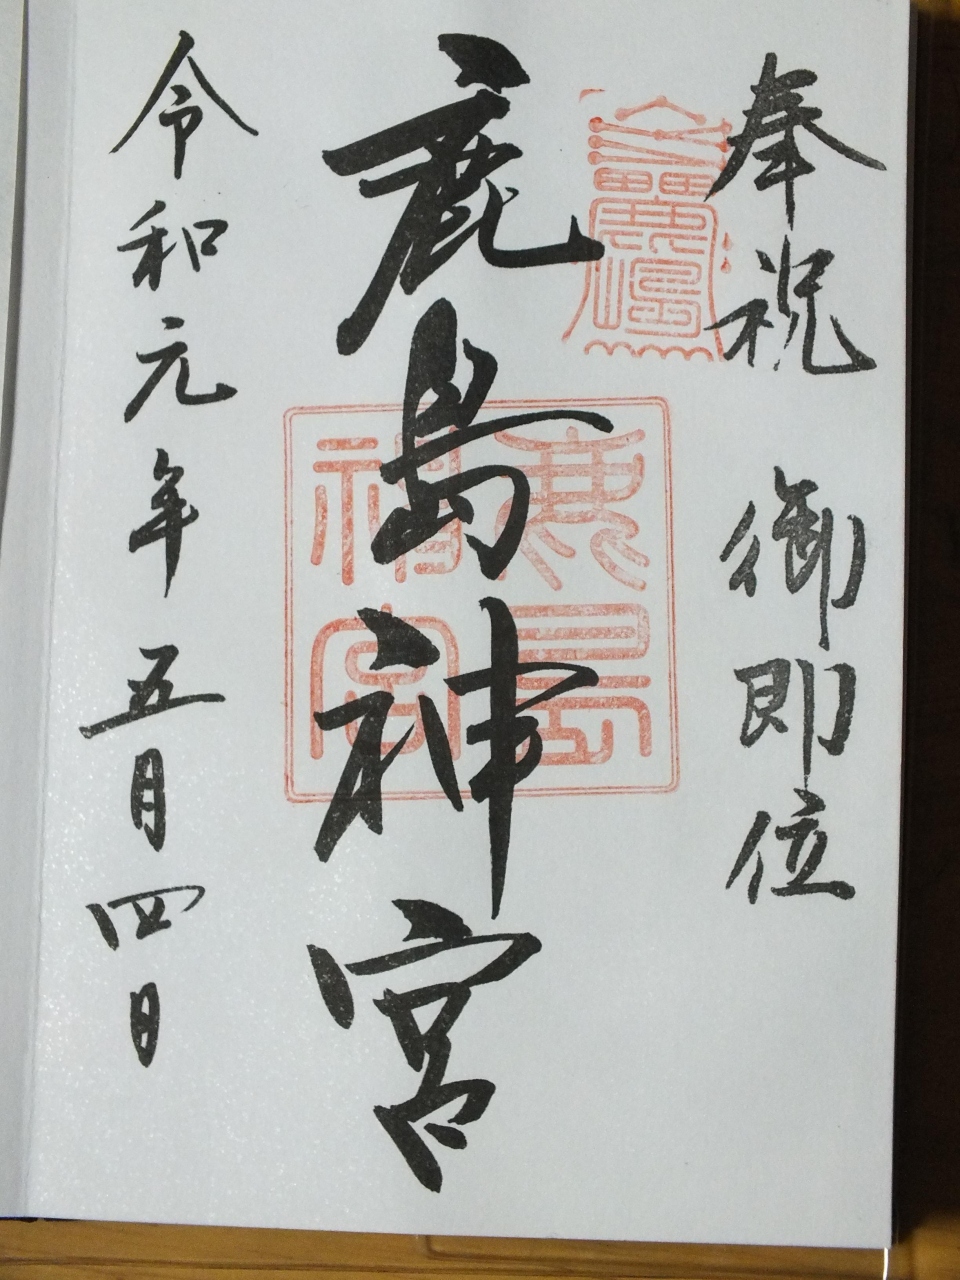 奉祝 御即位
鹿島神宮
鹿島神宮
令和元年 五月四日